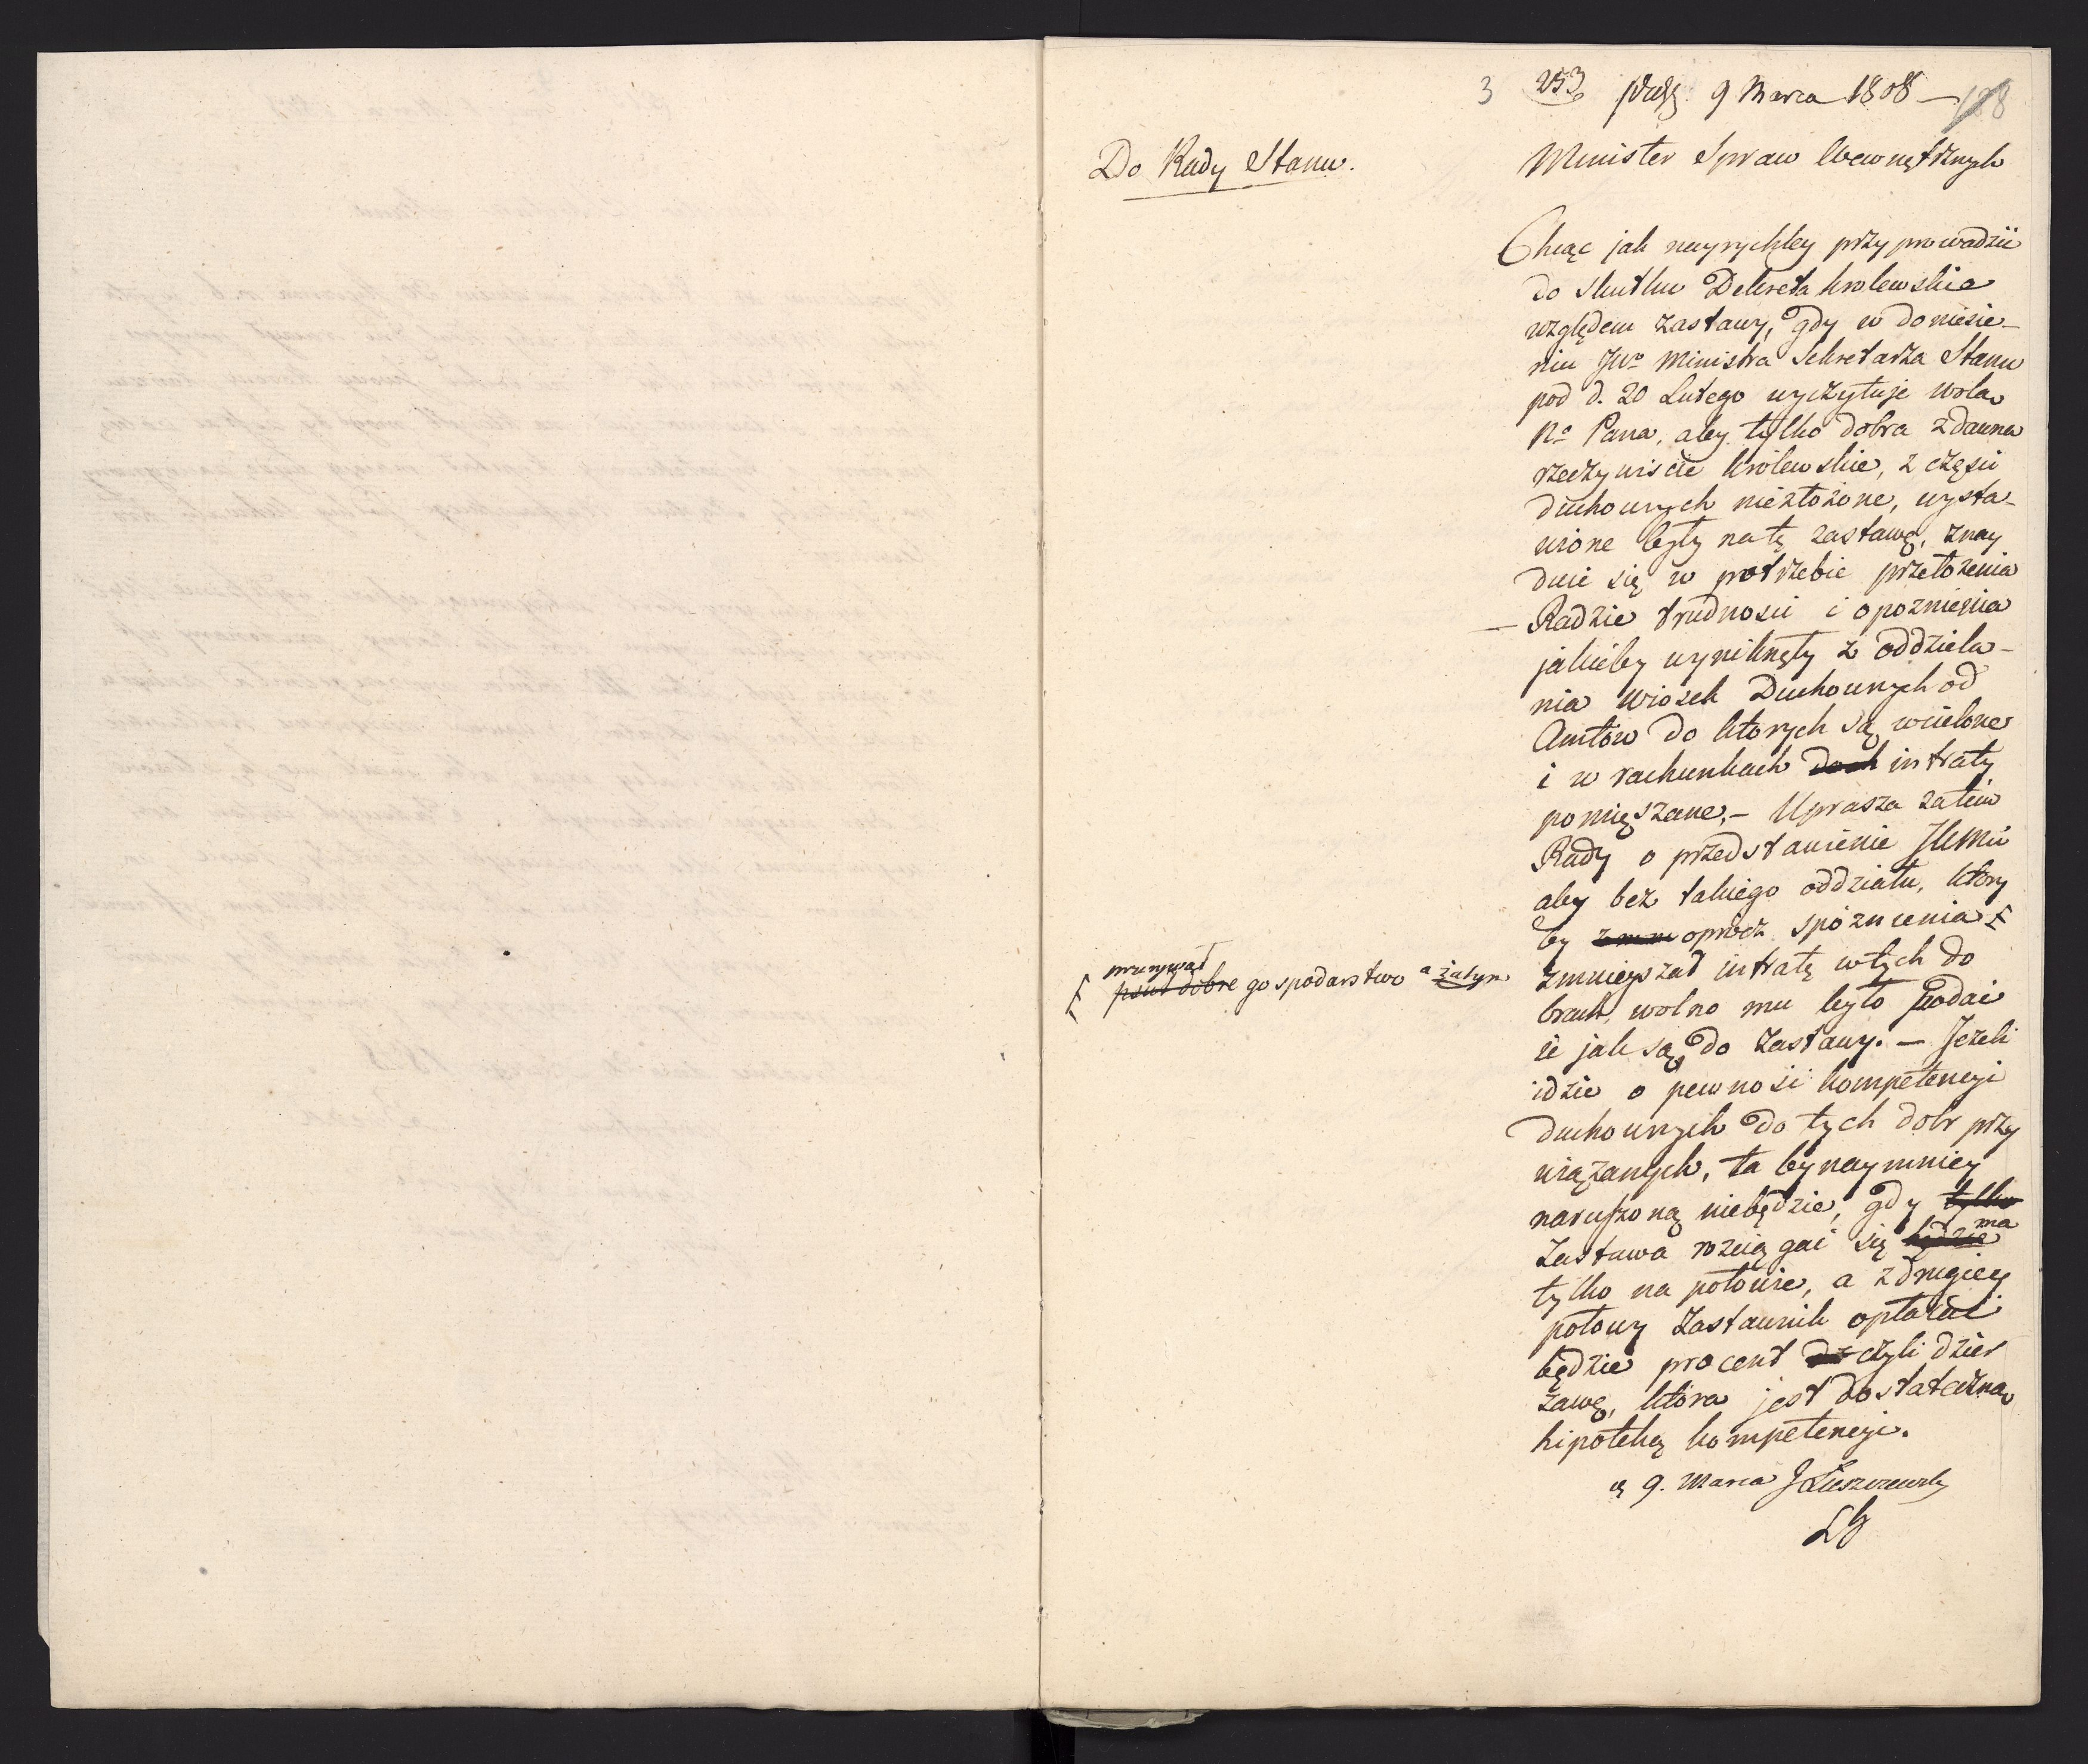 3 253 9 Marca 1808 — 128
Do Rady Stanu.
Minister Spraw Wewnętrznych
Chcąc jak nayrychley przyprowadzić
do skutku Dekreta krolewskie
względem zastawy, gdy w doniesie-
niu JWo Ministra Sekretarza Stanu
pod d. 20 Lutego wyczytuje wolą
No Pana, aby tylko dobra zdawna
rzeczywiście krolewskie, z części
duchownych niezłożone, wysta-
wione były na tę zastawę, znay
duie się w potrzebie przełożenia
— Radzie trudności i opoznienia
jakieby wyniknęły z oddziela-
nia wiosek Duchownych od
Amtow do ktorych są wcielone
i w rachunkach doch intraty
pomięszane, — Uprasza zatem
Rady o przedstawienie JKMci
aby bez takiego oddziału, ktory
by zmn oprocz spóznienia
przerywał
psuł dobre gospodarstwo a zatym
zmnieyszał intratę w tych do
brach, wolno mu było podać
ie jak są, do zastawy. — Jeżeli
idzie o pewność kompetencyi
duchownych do tych dobr przy
wiązanych, ta bynaymniey
naruszoną niebędzie, gdy tylko
ma
zastawa rozciągać się będzie
tylko na połowie, a z drugiey
połowy Zastawnik opłacać
będzie procent dz czyli dzier
zawę, ktora jest dostateczną
hipoteką kompetencyi.
9. Marca J Łuszczewski